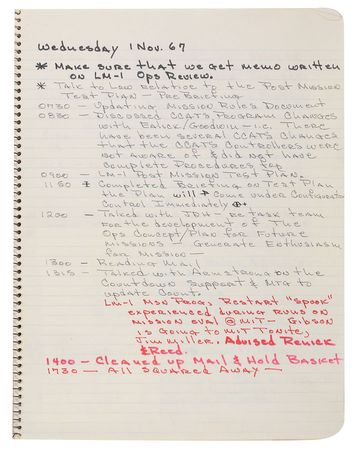 Wednesday 1 Nov. 67
* Make sure that we get memo written
on LM-1 Ops Review.
* Talk to Low relative to the Post Mission
Test Plan - Pre Briefing
0730 - Updating Mission Rules Document
0830 - Discussed CCATS Program Changes
with Ealick/Goodwin - i.e. There
have been several CCATS Changes
that the CCATS Controllers were
not aware of & did not have
Complete Procedures for
0900 - LM-1 Post Mission Test Plan.
1150 * Completed Briefing on Test Plan
the Plan will Come under Configuration
Control Immediately
1200 - Talked with JDH - re task team
for the development of the
Ops Concept/Plan for Future
Missions / Generate Enthusiasm
for Mission -
1300 - Reading Mail
1315 - Talked with Armstrong on the
Countdown Support & MTG to
update Count.
LM-1 Msn Prog, Restart "Spook"
experienced during runs on
Mission eval @ MIT - Gibson
is going to MIT Tonite,
Jim Miller. Advised Renick
& Reed.
1400 - Cleaned up Mail & Hold Basket
1730 - All Squared Away -